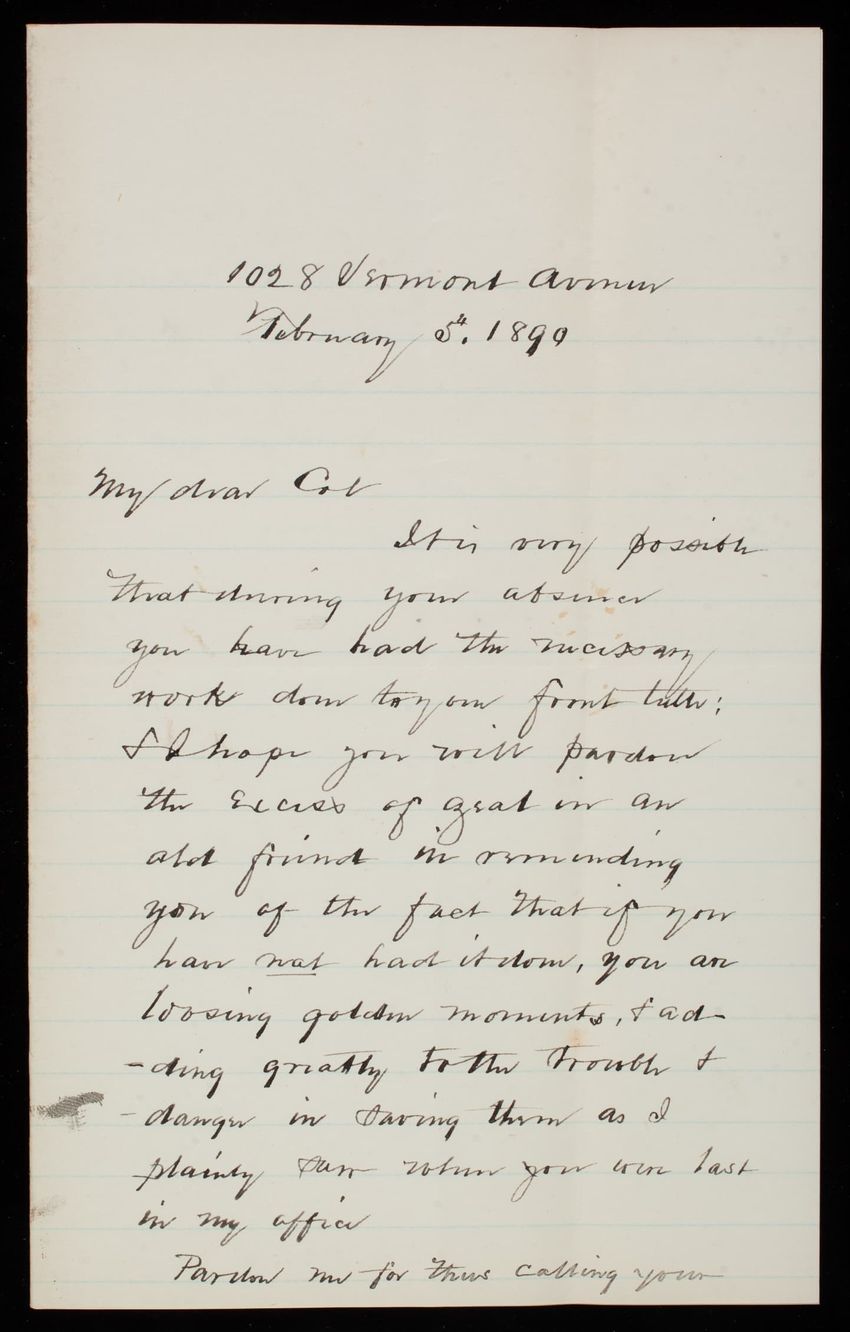 1028 Vermont Avenue
February 5th. 1890
My dear Col
It is very possible
that during your absence
you have had the necessary
work done to your front teeth;
& I hope you will pardon
the excess of zeal in an
old friend in remending
you of the fact that if you
have not had it done, you are
loosing golden moments, & ad-
-ding greatly to the trouble &
-danger in saving them as I
plainly saw when you were last
in my office
Pardon me for thus calling your